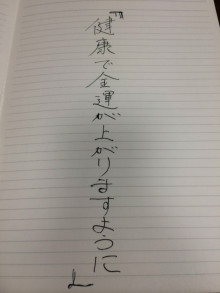 『健康で金運が上がりますように』